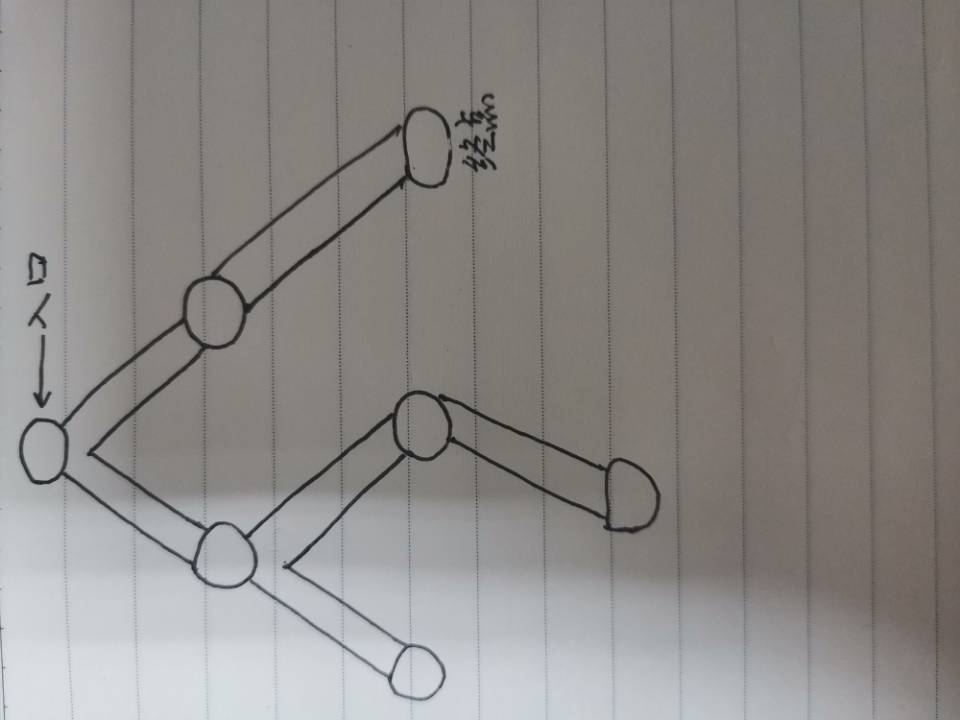 入口
终点